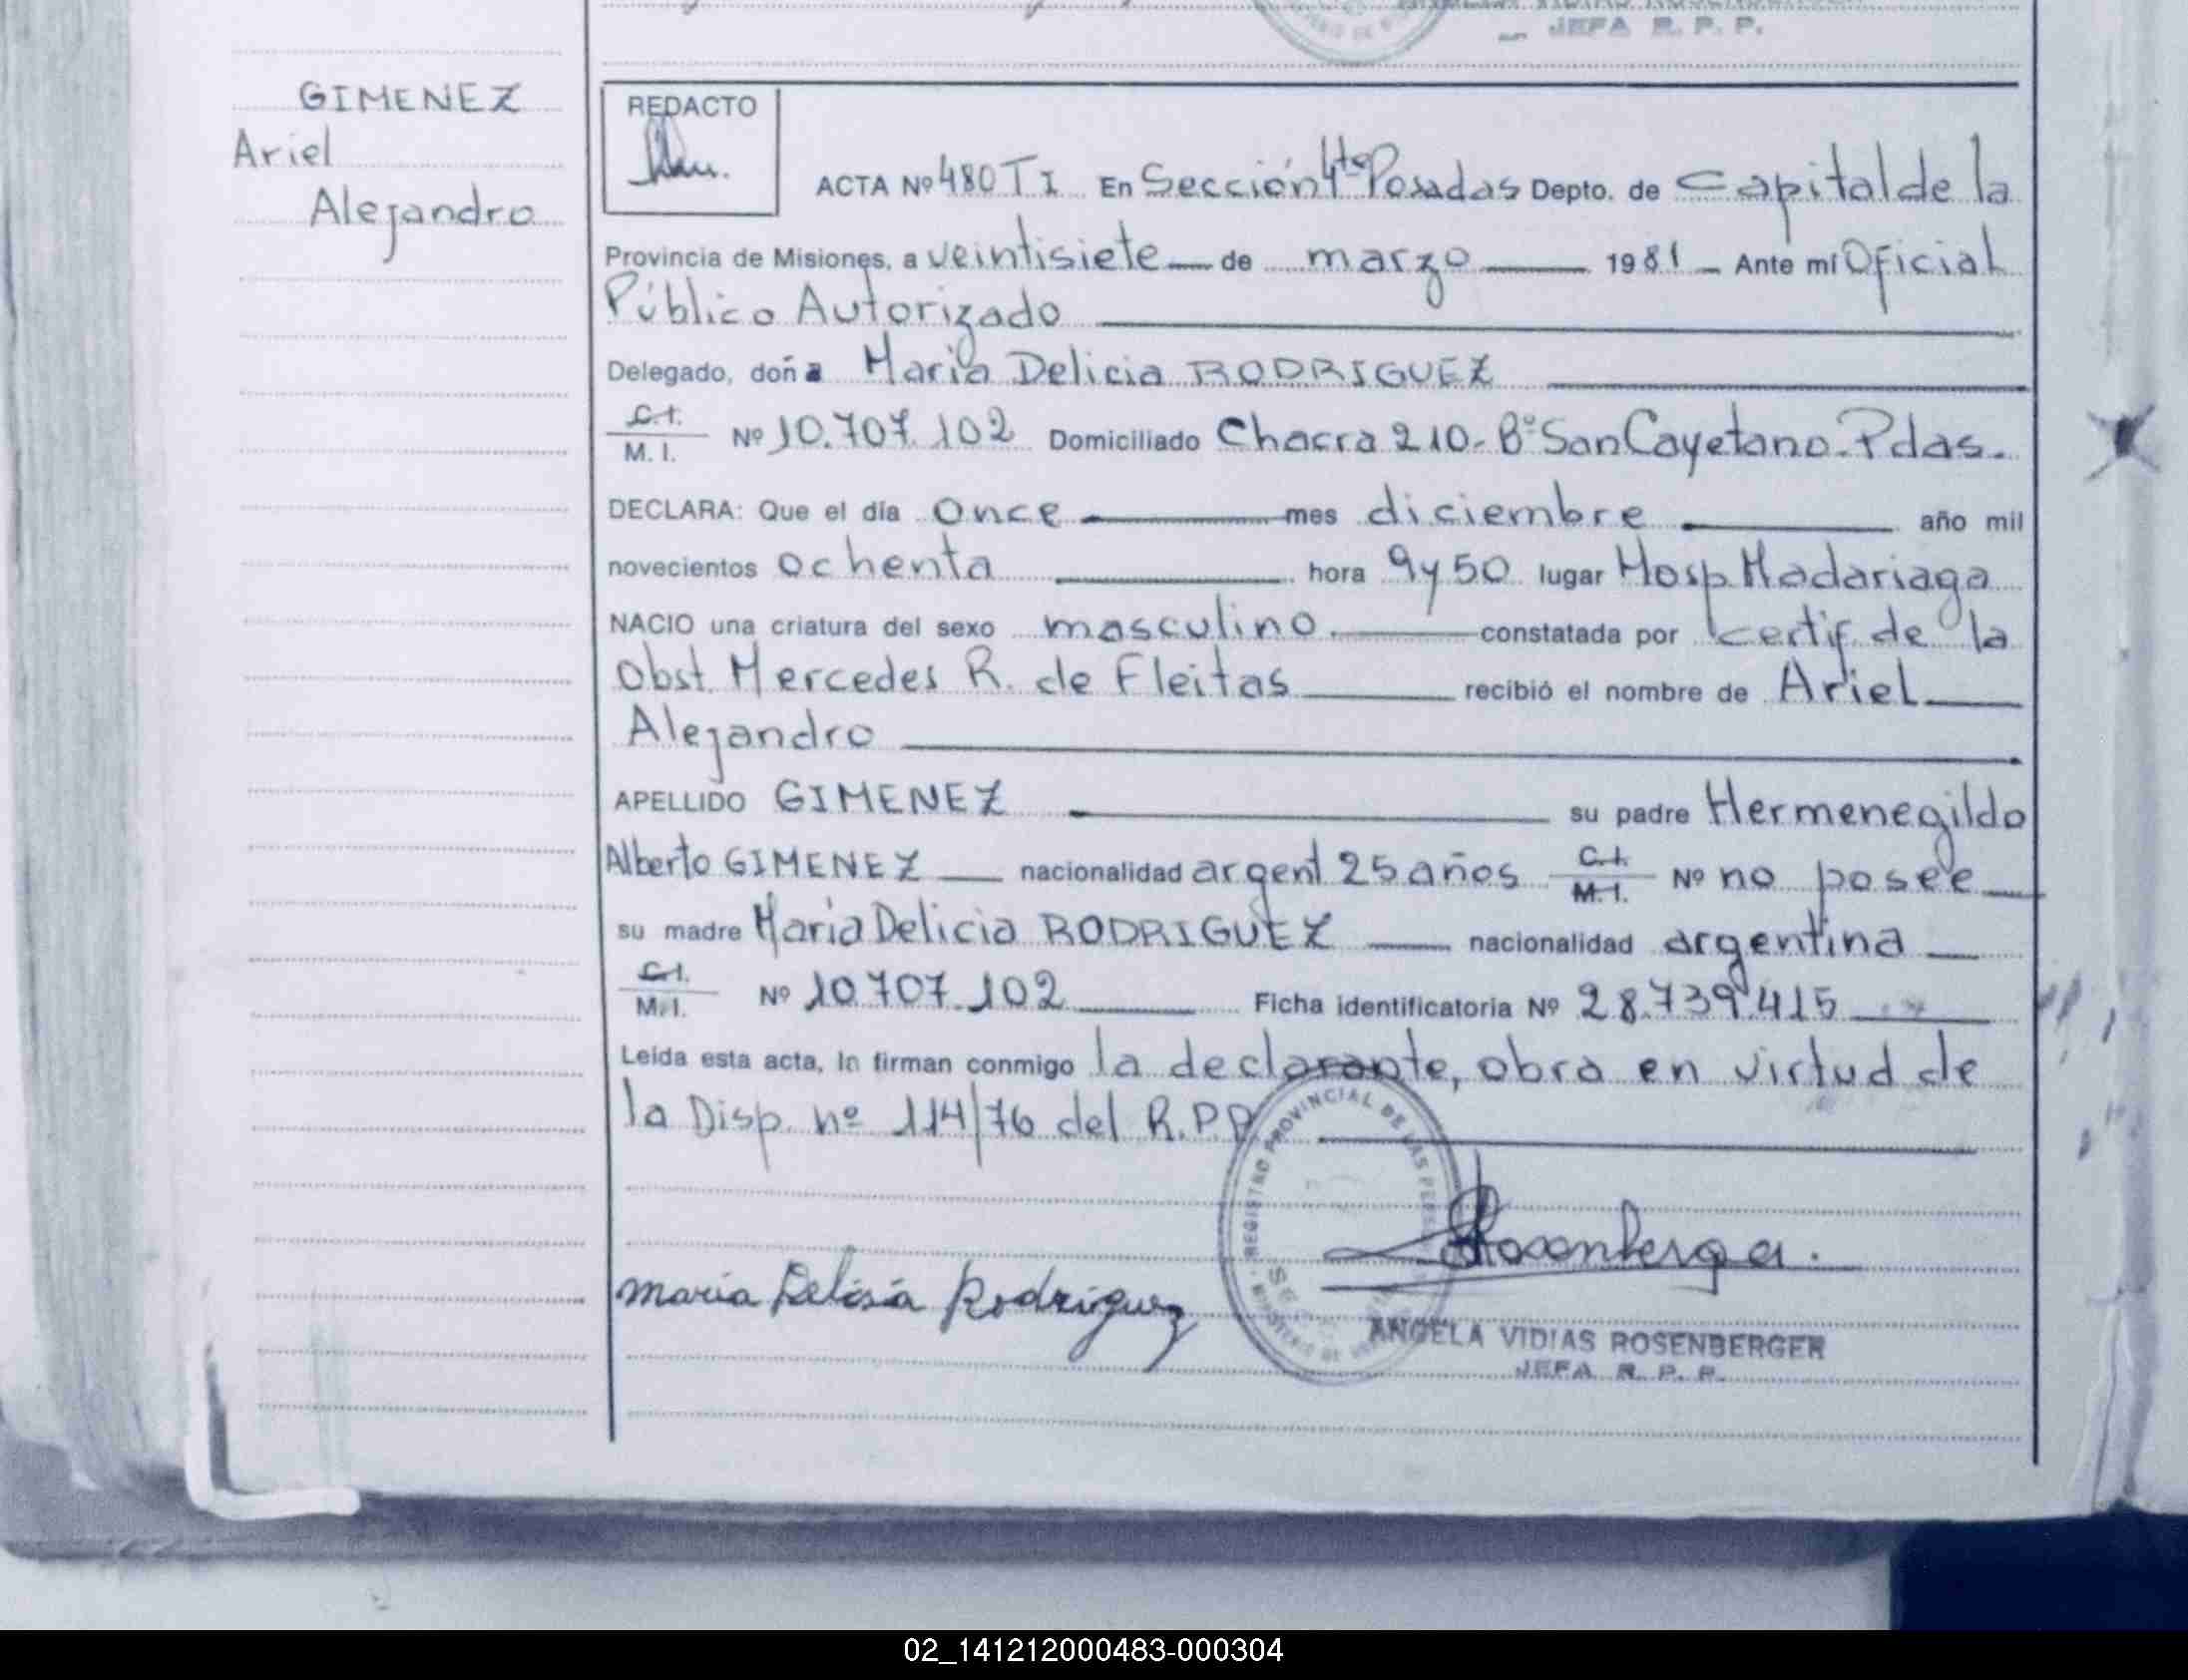 JEFA R. P. P.
GIMENEZ
Ariel
Alejandro
REDACTO
ACTA Nº 480 T I En Sección 4ta Posadas Depto. de Capital de la
Provincia de Misiones, a veintisiete de marzo 1981 Ante mí Oficial
Público Autorizado
Delegado, doña Maria Delicia RODRIGUEZ
C.I.
M. I. Nº 10.707.102 Domiciliado Chacra 210-Bº San Cayetano-Pdas.
DECLARA: Que el día once mes diciembre año mil
novecientos ochenta hora 9 y 50 lugar Hosp. Madariaga
NACIO una criatura del sexo masculino. constatada por certif. de la
Obst. Mercedes R. de Fleitas recibió el nombre de Ariel
Alejandro
APELLIDO GIMENEZ su padre Hermenegildo
Alberto GIMENEZ nacionalidad argent 25 años C.I.
M.I. Nº no posee
su madre Maria Delicia RODRIGUEZ nacionalidad argentina
C.I.
M.I. Nº 10.707.102 Ficha identificatoria Nº 28.739.415
Leída esta acta, la firman conmigo la declarante, obra en virtud de
la Disp. nº 114/76 del R.P.P.
REGISTRO PROVINCIAL DE LAS
Rosenberger.
maria Delisia Rodriguez
ANGELA VIDIAS ROSENBERGER
JEFA R. P. P.
02_141212000483-000304